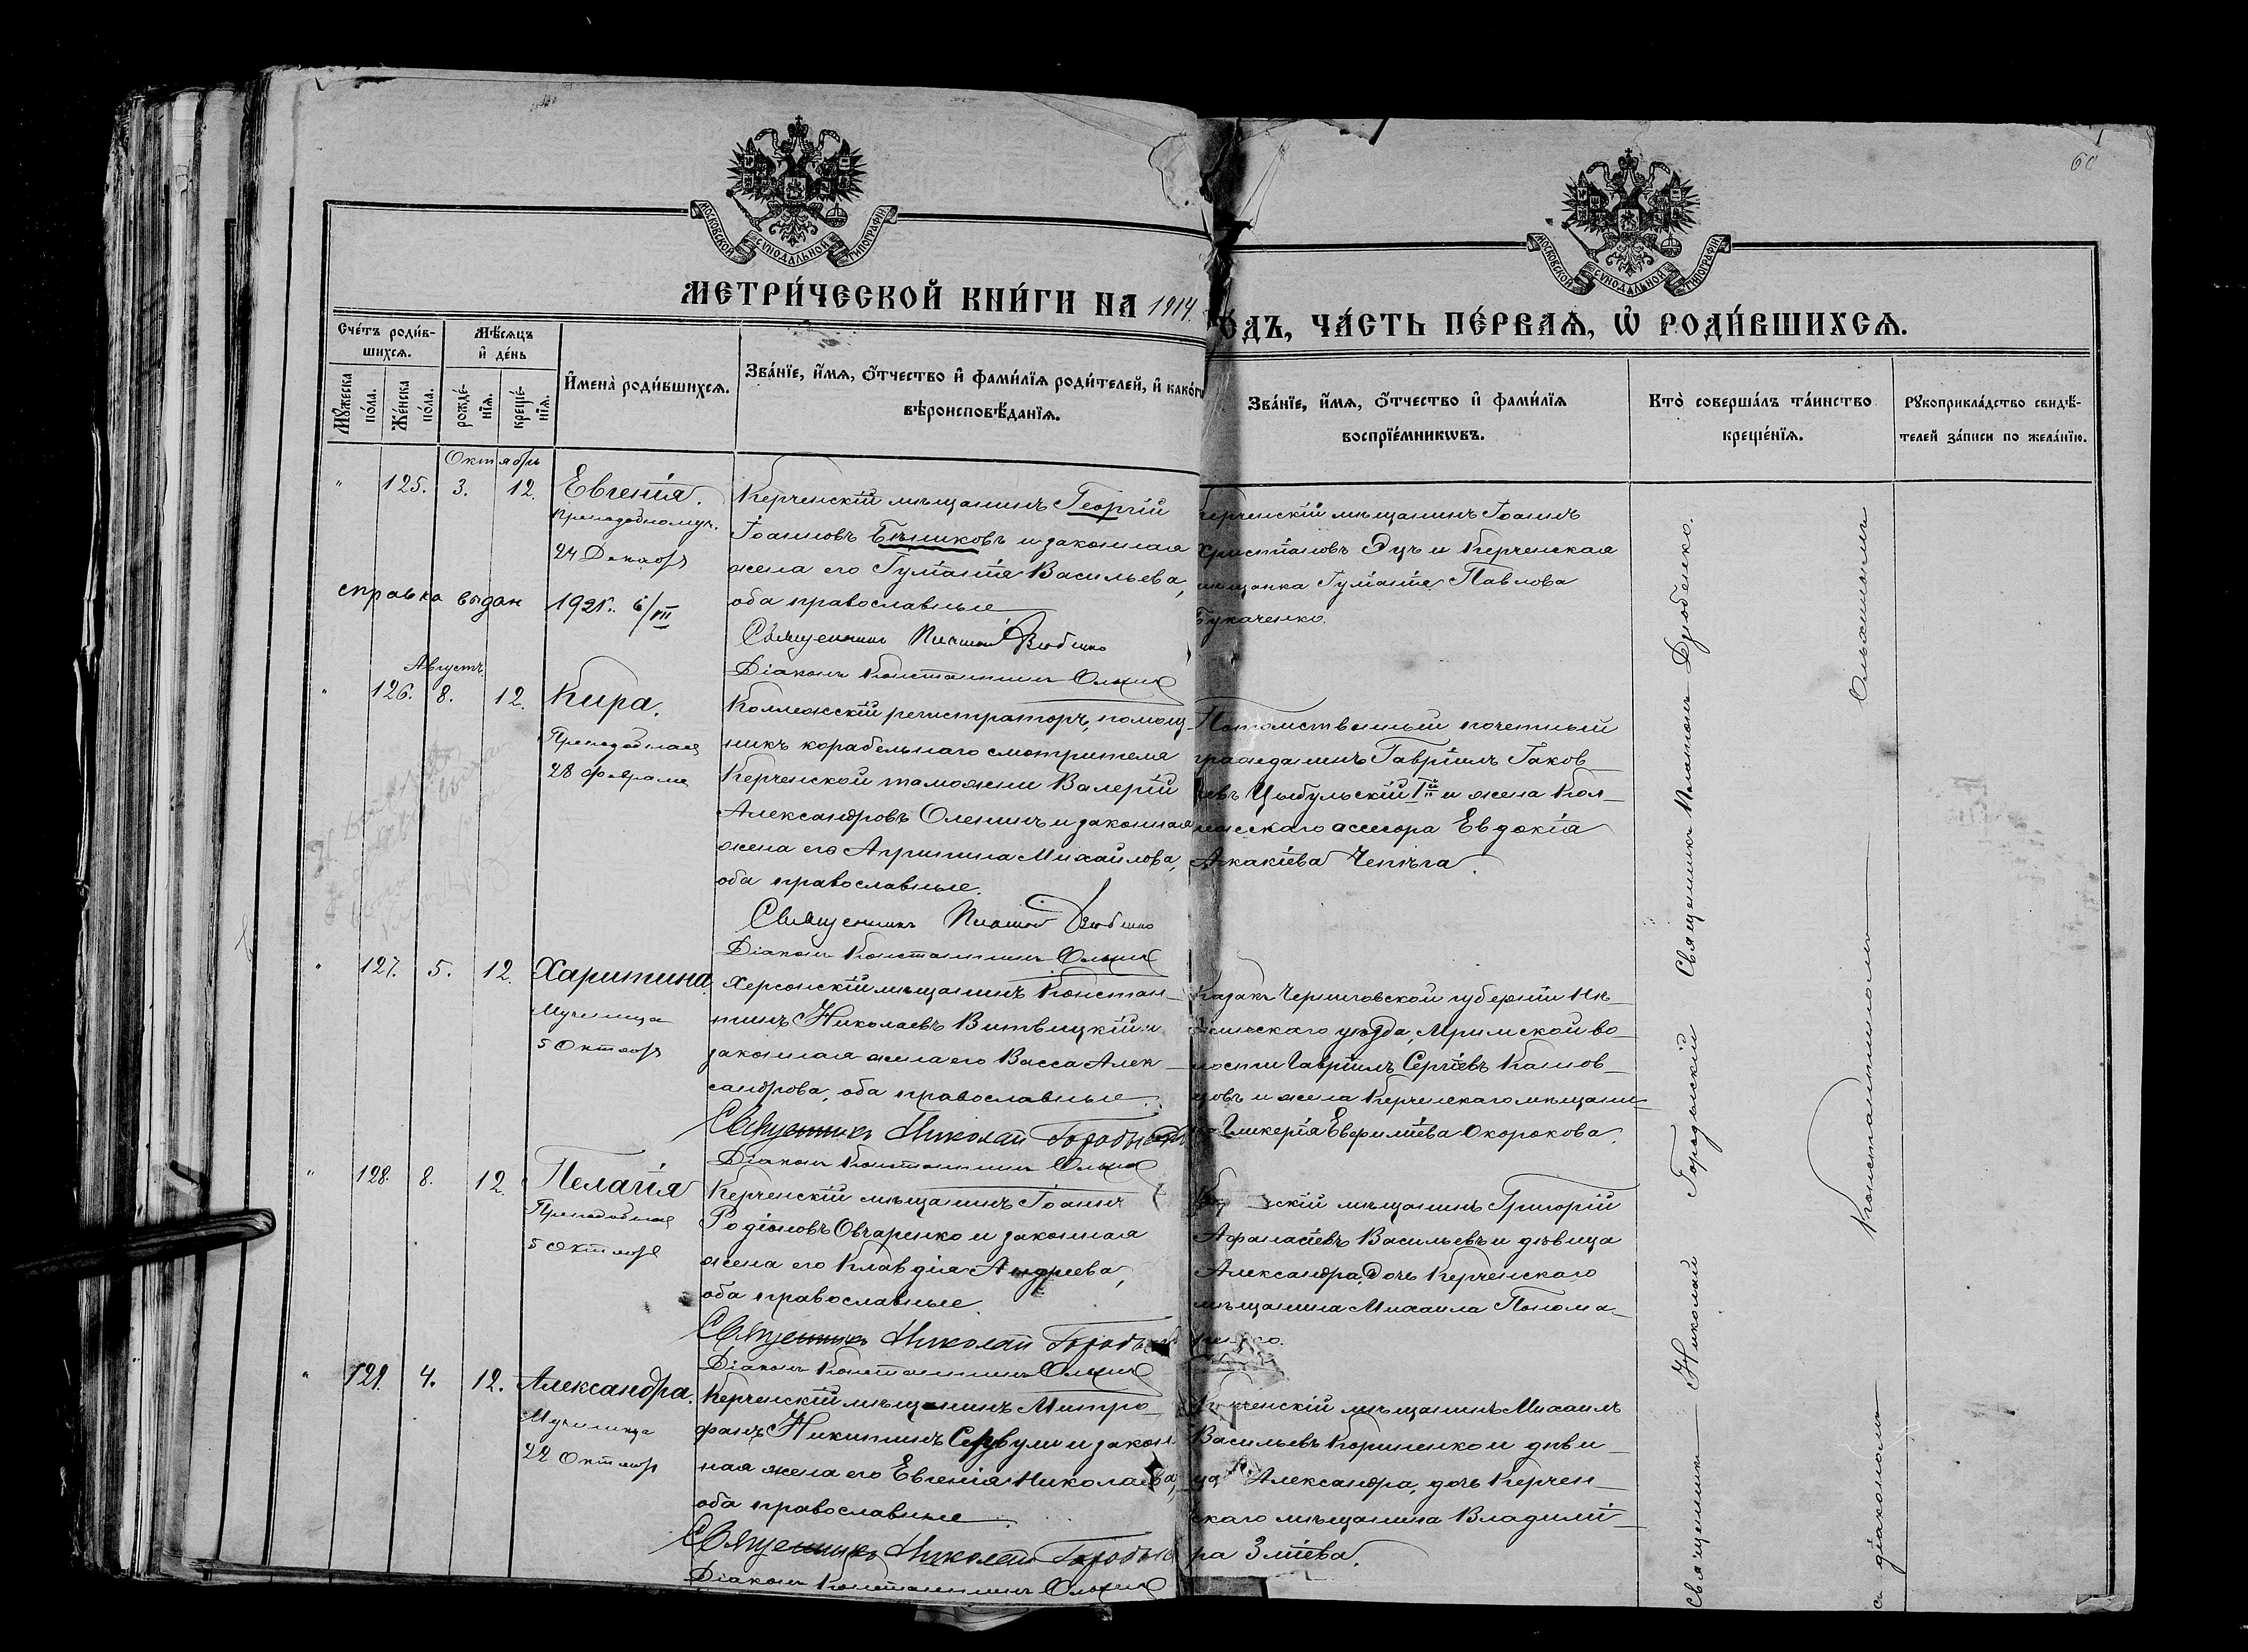 60
МОСКОВСКОЙ СѴНОДАЛЬНОЙ ТИПОГРАФІИ
МОСКОВСКОЙ СѴНОДАЛЬНОЙ ТИПОГРАФІИ
МЕТРИ́ЧЕСКОЙ КНИ́ГИ НА 1914
О́ДЪ, ЧА́СТЬ ПЕ́РВАѦ, Ѡ҆ РОДИ́ВШИХСѦ.
Сче́тъ роди́в-
шихсѧ.
Мꙋ́жеска по́ла.
Же́нска по́ла.
Мѣ́сѧцъ
и҆ де́нь
рожде́-
нїѧ.
креще́-
нїѧ.
И҆мена̀ роди́вшихсѧ.
Зва́нїе, и҆́мѧ, ѻ҆́тчество и҆ фами́лїѧ роди́телей, и҆ како́гѡ
вѣроисповѣ́данїѧ.
Зва́нїе, и҆́мѧ, ѻ҆́тчество и҆ фами́лїѧ
воспрїе́мникѡвъ.
Кто̀ соверша́лъ та́инство
креще́нїѧ.
Рꙋкоприкла́дство свидѣ́-
телей за́писи по жела́нїю.
Октябрь
" 125. 3. 12. Евгенія.
Преподобномуч.
24 Декабря
справка выдан 1921 г. 6/VII
Керченскій мѣщанинъ Георгій
Іоанновъ Бѣликовъ и законная
жена его Гуліанія Васильева,
оба православные
Священникъ Платонъ Дзюбенко
Діаконъ Константинъ
Керченскій мѣщанинъ Іоаннъ
Христіановъ Эцъ и Керченская
мѣщанка Гуліанія Павлова
Букаченко.
Августъ
" 126. 8. 12. Кира.
Преподобная
28 Февраля
Коллежскій регистраторъ, помощ-
никъ корабельнаго смотрителя
Керченской таможни Валерій
Александровъ Оленинъ и законная
жена его Агрипина Михайлова,
оба православные.
Священникъ Платонъ Дзюбенко
Діаконъ Константинъ
Потомственный почетный
гражданинъ Гавріилъ Іаков-
левъ Цыбульскій Iй и жена Кол-
лежскаго ассесора Евдокія
Акакіева Чепѣга.
" 127. 5. 12. Харитина.
Мученица
5 Октября
Херсонскій мѣщанинъ Констан-
тинъ Николаевъ Витвицкій и
законная жена его Васса Алек-
сандрова, оба православные.
Священникъ Николай Городыскій
Діаконъ Константинъ
Казакъ Черниговской губерніи Нѣ-
жинскаго уѣзда, Мринской во-
лости Гавріилъ Сергіевъ
и жена Керченскаго мѣщани-
на Гликерія Евфиміева Окорокова.
" 128. 8. 12. Пелагія
Преподобная
5 Октября
Керченскій мѣщанинъ Іоаннъ
Родіоновъ Овчаренко и законная
жена его Клавдія Андреева,
оба православные.
Священникъ Николай Городыскій
Діаконъ Константинъ
скій мѣщанинъ Григорій
Афанасіевъ Васильевъ и дѣвица
Александра, дочь Керченскаго
мѣщанина Михаила Понома-
ренко.
" 129. 4. 12. Александра.
Мученица
22 Октября
Керченскій мѣщанинъ Митро-
фанъ Никитинъ Сервули и закон-
ная жена его Евгенія Николаева,
оба православные
Священникъ Николай Городыскій
Діаконъ Константинъ
Керченскій мѣщанинъ Михаилъ
Васильевъ Корниенко и дѣви-
ца Александра, дочь Керчен-
скаго мѣщанина Владими-
ра Зміева.
Священникъ Николай Городыскій Священникъ Платонъ Дзюбенко.
съ діакономъ Константиномъ